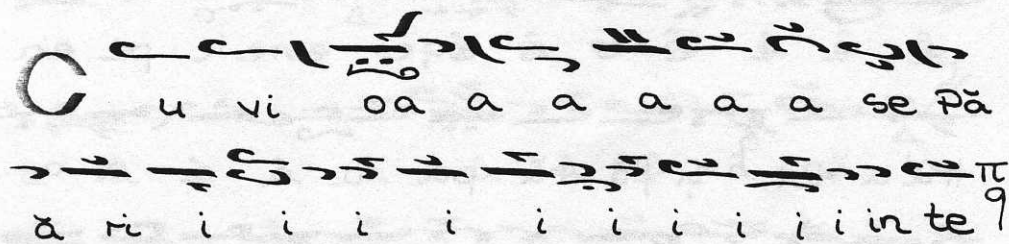 Cu vi oa a a a a a se Pă
ă ri i i i i i i i i i in te π q